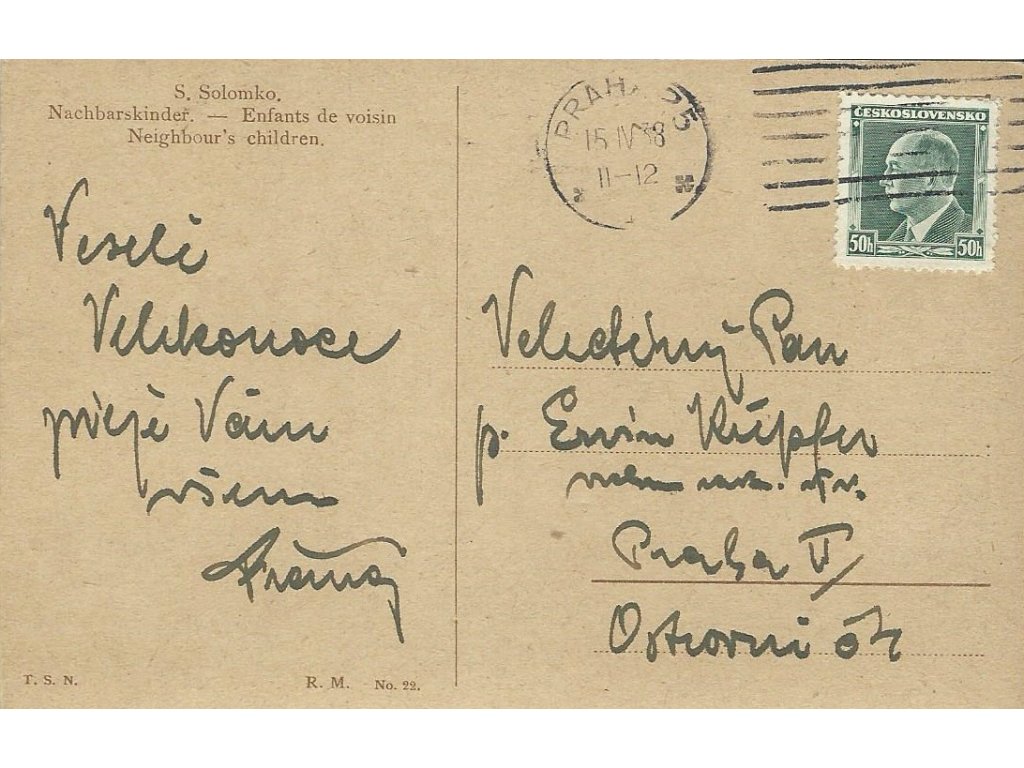 S. Solomko.
Nachbarskinder. — Enfants de voisin
Neighbour's children.
Veselé
Velikonoce
přeje Vám
všem
PRAHA 25
15 IV 38
11-12
ČESKOSLOVENSKO
50h 50h
Velectěný Pan
p. Ervin Küpfer
Praha II
Ostrovní
T. S. N.
R. M. No. 22.